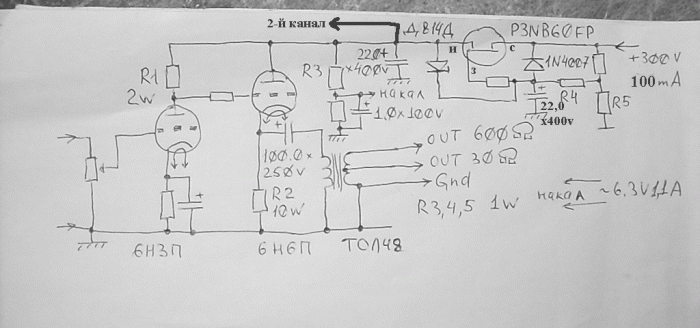 2-й канал
Д814Д
P3NB60FP
и
с
з
1N4007
+300V
100mA
220+
x400v
R1
2w
R3
накал
1,0x100V
R4
R5
22,0
x400v
100.0x
250V
R2
10w
OUT 600Ω
OUT 30Ω
Gnd
R3,4,5 1W
накал ~6,3V 1,1A
6Н3П
6Н6П
ТОЛ48